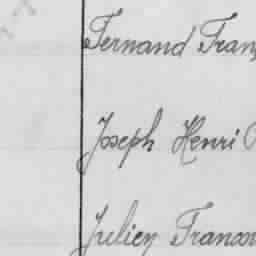 Fernand Fran
Joseph Henri
Julien Francois